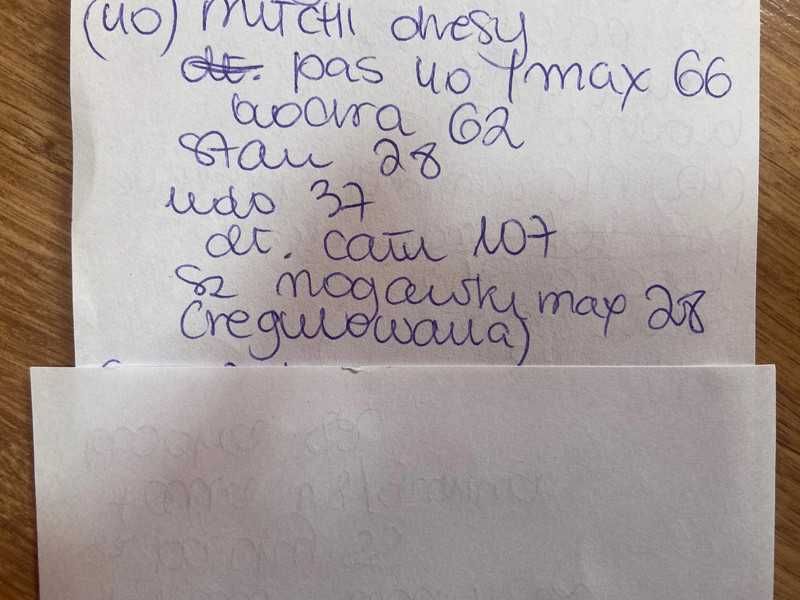 (40) MITCHI dresy
pas 40 / max 66
biodra 62
stan 28
udo 37
dł. całk 107
sz nogawki max 28
(regulowana)